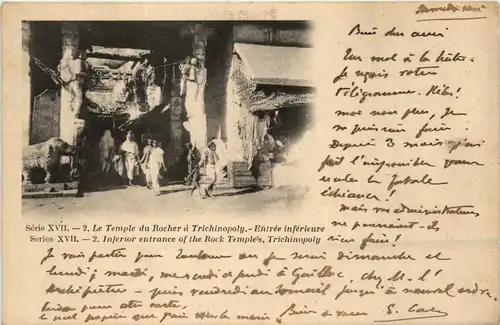 Bien cher
Un mot à la hâte.
Je reçois votre
télégramme. Hélas!
moi non plus, je
ne puis rien faire
Depuis 3 mois j'ai
fait l'impossible pour
reculer la fatale
échéance!
mais nos administrateurs
ne pourraient-ils
rien faire!
Série XVII. — 2. Le Temple du Rocher à Trichinopoly.- Entrée inférieure
Series XVII. — 2. Inferior entrance of the Rock Temple's, Trichinopoly
Je vais partir pour Toulouse où je serai dimanche et
lundi; mardi, mercredi et jeudi à Gaillac, chez M. l'
Archiprêtre - puis vendredi jusqu'à nouvel ordre
pour cette carte
le seul papier que j'ai sous la main. Bien à vous